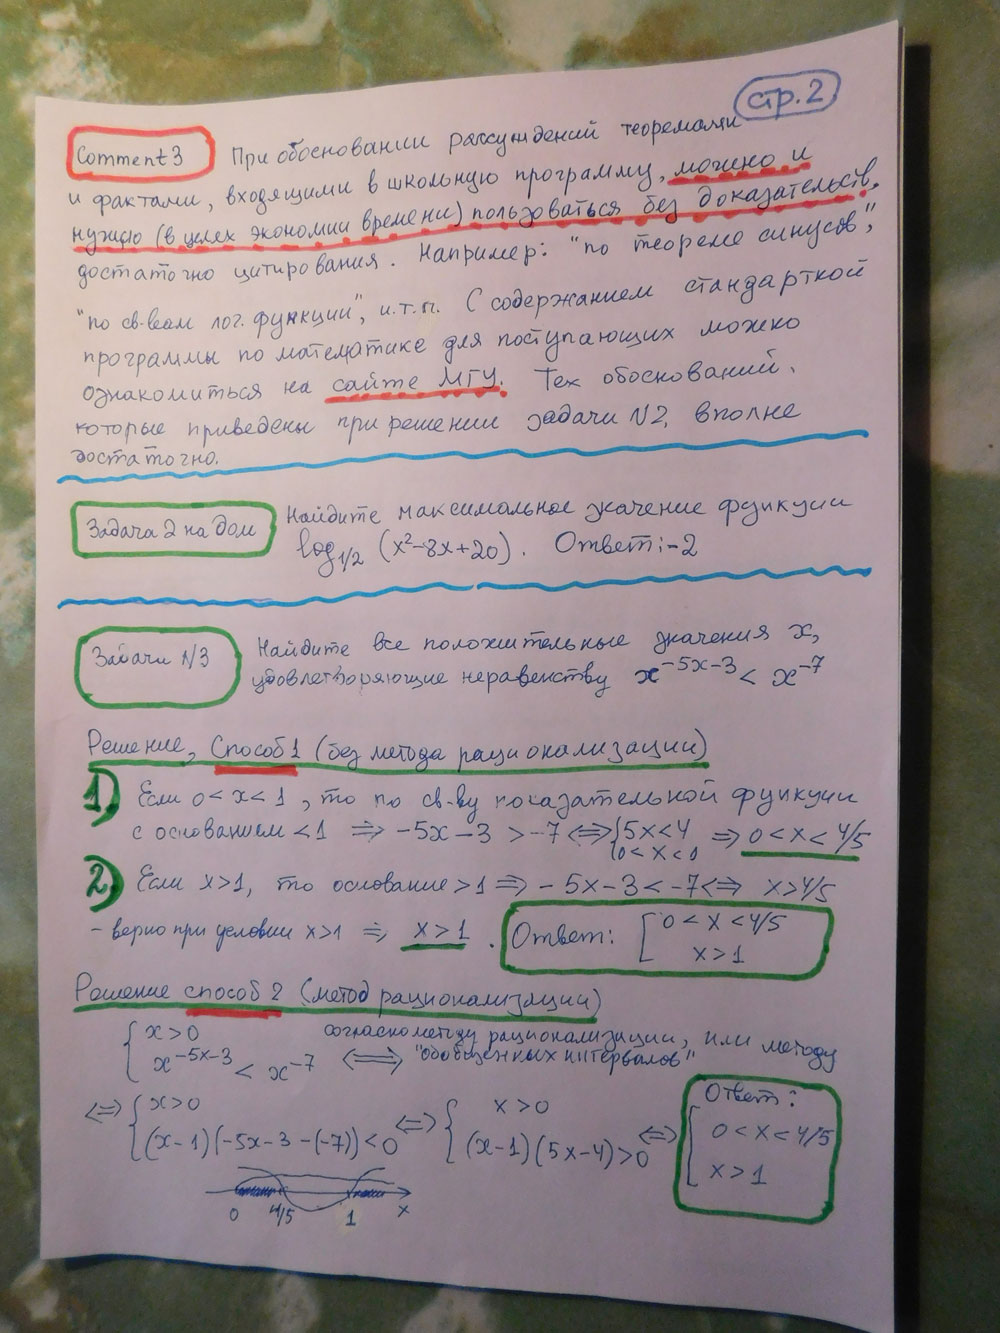 стр. 2
Comment 3 При обосновании рассуждений теоремами
и фактами, входящими в школьную программу, можно и
нужно (в целях экономии времени) пользоваться без доказательств,
достаточно цитирования. Например: "по теореме синусов",
"по св-вам лог. функции", и.т.п. С содержанием стандартной
программы по математике для поступающих можно
ознакомиться на сайте МГУ. Тех обоснований,
которые приведены при решении задачи N2, вполне
достаточно.
Задача 2 на дом Найдите максимальное значение функции
log₁/₂ (x²-8x+20). Ответ: -2
Задача N3 Найдите все положительные значения x,
удовлетворяющие неравенству x^{-5x-3} < x^{-7}
Решение, Способ 1 (без метода рационализации)
1) Если 0<x<1, то по св-ву показательной функции
с основанием <1 ⇒ -5x-3 > -7 ⇔ {5x<4 0<x<1 ⇒ 0<x<4/5
2) Если x>1, то основание >1 ⇒ -5x-3<-7 ⇔ x>4/5
- верно при условии x>1 ⇒ x>1. Ответ: [0<x<4/5 x>1
Решение способ 2 (метод рационализации)
{x>0 x^{-5x-3} < x^{-7} ⇔ согласно методу рационализации, или методу
"обобщенных интервалов"
⇔ {x>0 (x-1)(-5x-3-(-7))<0 ⇔ {x>0 (x-1)(5x-4)>0 ⇔
Ответ:
[0<x<4/5
x>1
0 4/5 1 x